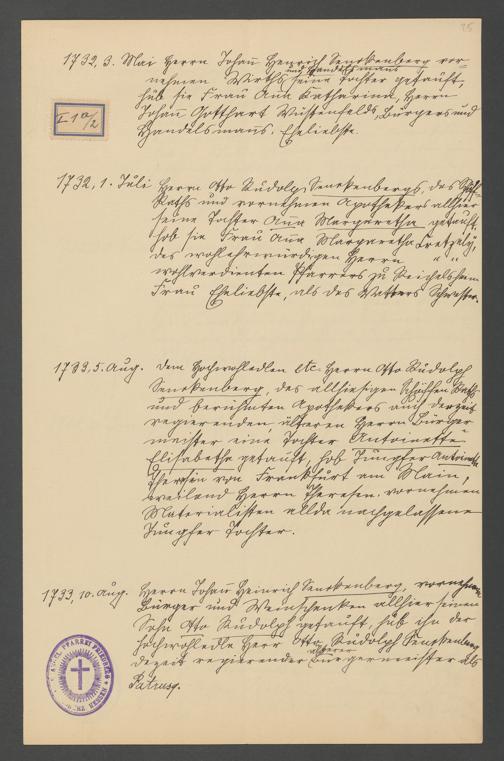 25
1732, 3. Mai Herrn Johann Heinrich Senckenberg vor-
und Handelsmanns
nehmen Wirths seine Tochter getauft,
hub sie Frau Anna Katharina, Herrn
Johan Gotthart Wüstenfelds, Bürgers und
Handelsmans. Eheliebste.
I 1a/2
1732, 1. Juli Herrn Otto Rudolf Senckenbergs, des
Raths und vornehmen Apothekers allhier
seine Tochter Anna Margaretha getauft,
hob sie Frau Anna Margaretha
des wohlehrwürdigen Herrn " "
wohlverdienten Pfarrers zu Reichelsheim
Frau Eheliebste, als des Vatters Schwester.
1733, 5. Aug. dem Hochwohledlen etc. Herrn Otto Rudolph
Senckenberg, des allhiesigen Raths
und berühmten Apothekers auch derzeit
regierenden älteren Herrn Bürger
meister eine Tochter Antoinette
Elisabetha getauft, hob Jungfer Antoinette
von Frankfurt am Main,
weilend Herrn vornehmen
Materialisten allda nachgelassene
Jungfer Tochter.
1733, 10. Aug. Herrn Johann Heinrich Senckenberg, vornehmen
Bürger und Weinschenken allhier seinen
Sohn Otto Rudolph getauft, hub ihn der
Hochwohledle Herr Otto Rudolph Senckenberg
älterer
derzeit regierender Bürgermeister als
Patruus.
EVGL. PFARREI FRIEDBERG
HESSEN